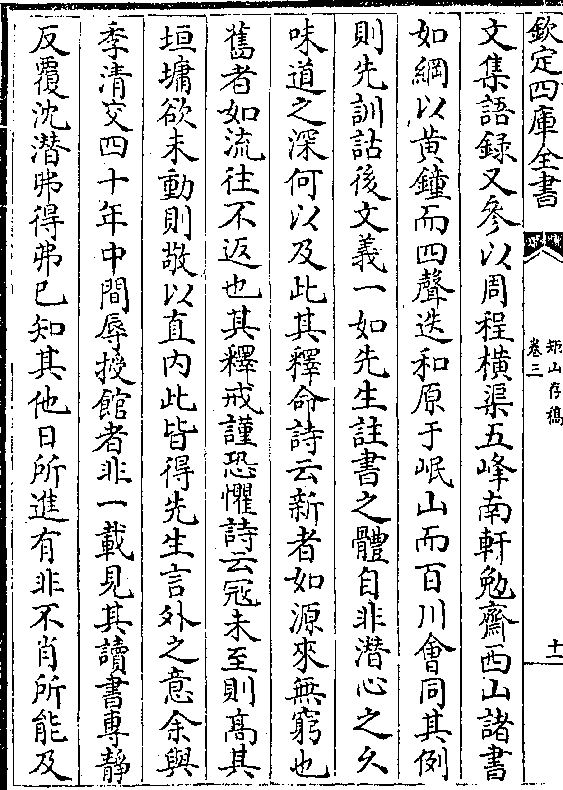 欽定四庫全書
矩山存稿
卷三
十一
文集語録又參以周程横渠五峰南軒勉齋西山諸書
如綱以黄鐘而四聲迭和原于岷山而百川會同其例
則先訓詁後文義一如先生註書之體自非潜心之久
味道之深何以及此其釋命詩云新者如源來無窮也
舊者如流往不返也其釋戒謹恐懼詩云冦未至則髙其
垣墉欲未動則敬以直内此皆得先生言外之意余與
季清交四十年中間辱授館者非一載見其讀書專靜
反覆沈潜弗得弗已知其他日所進有非不肖所能及